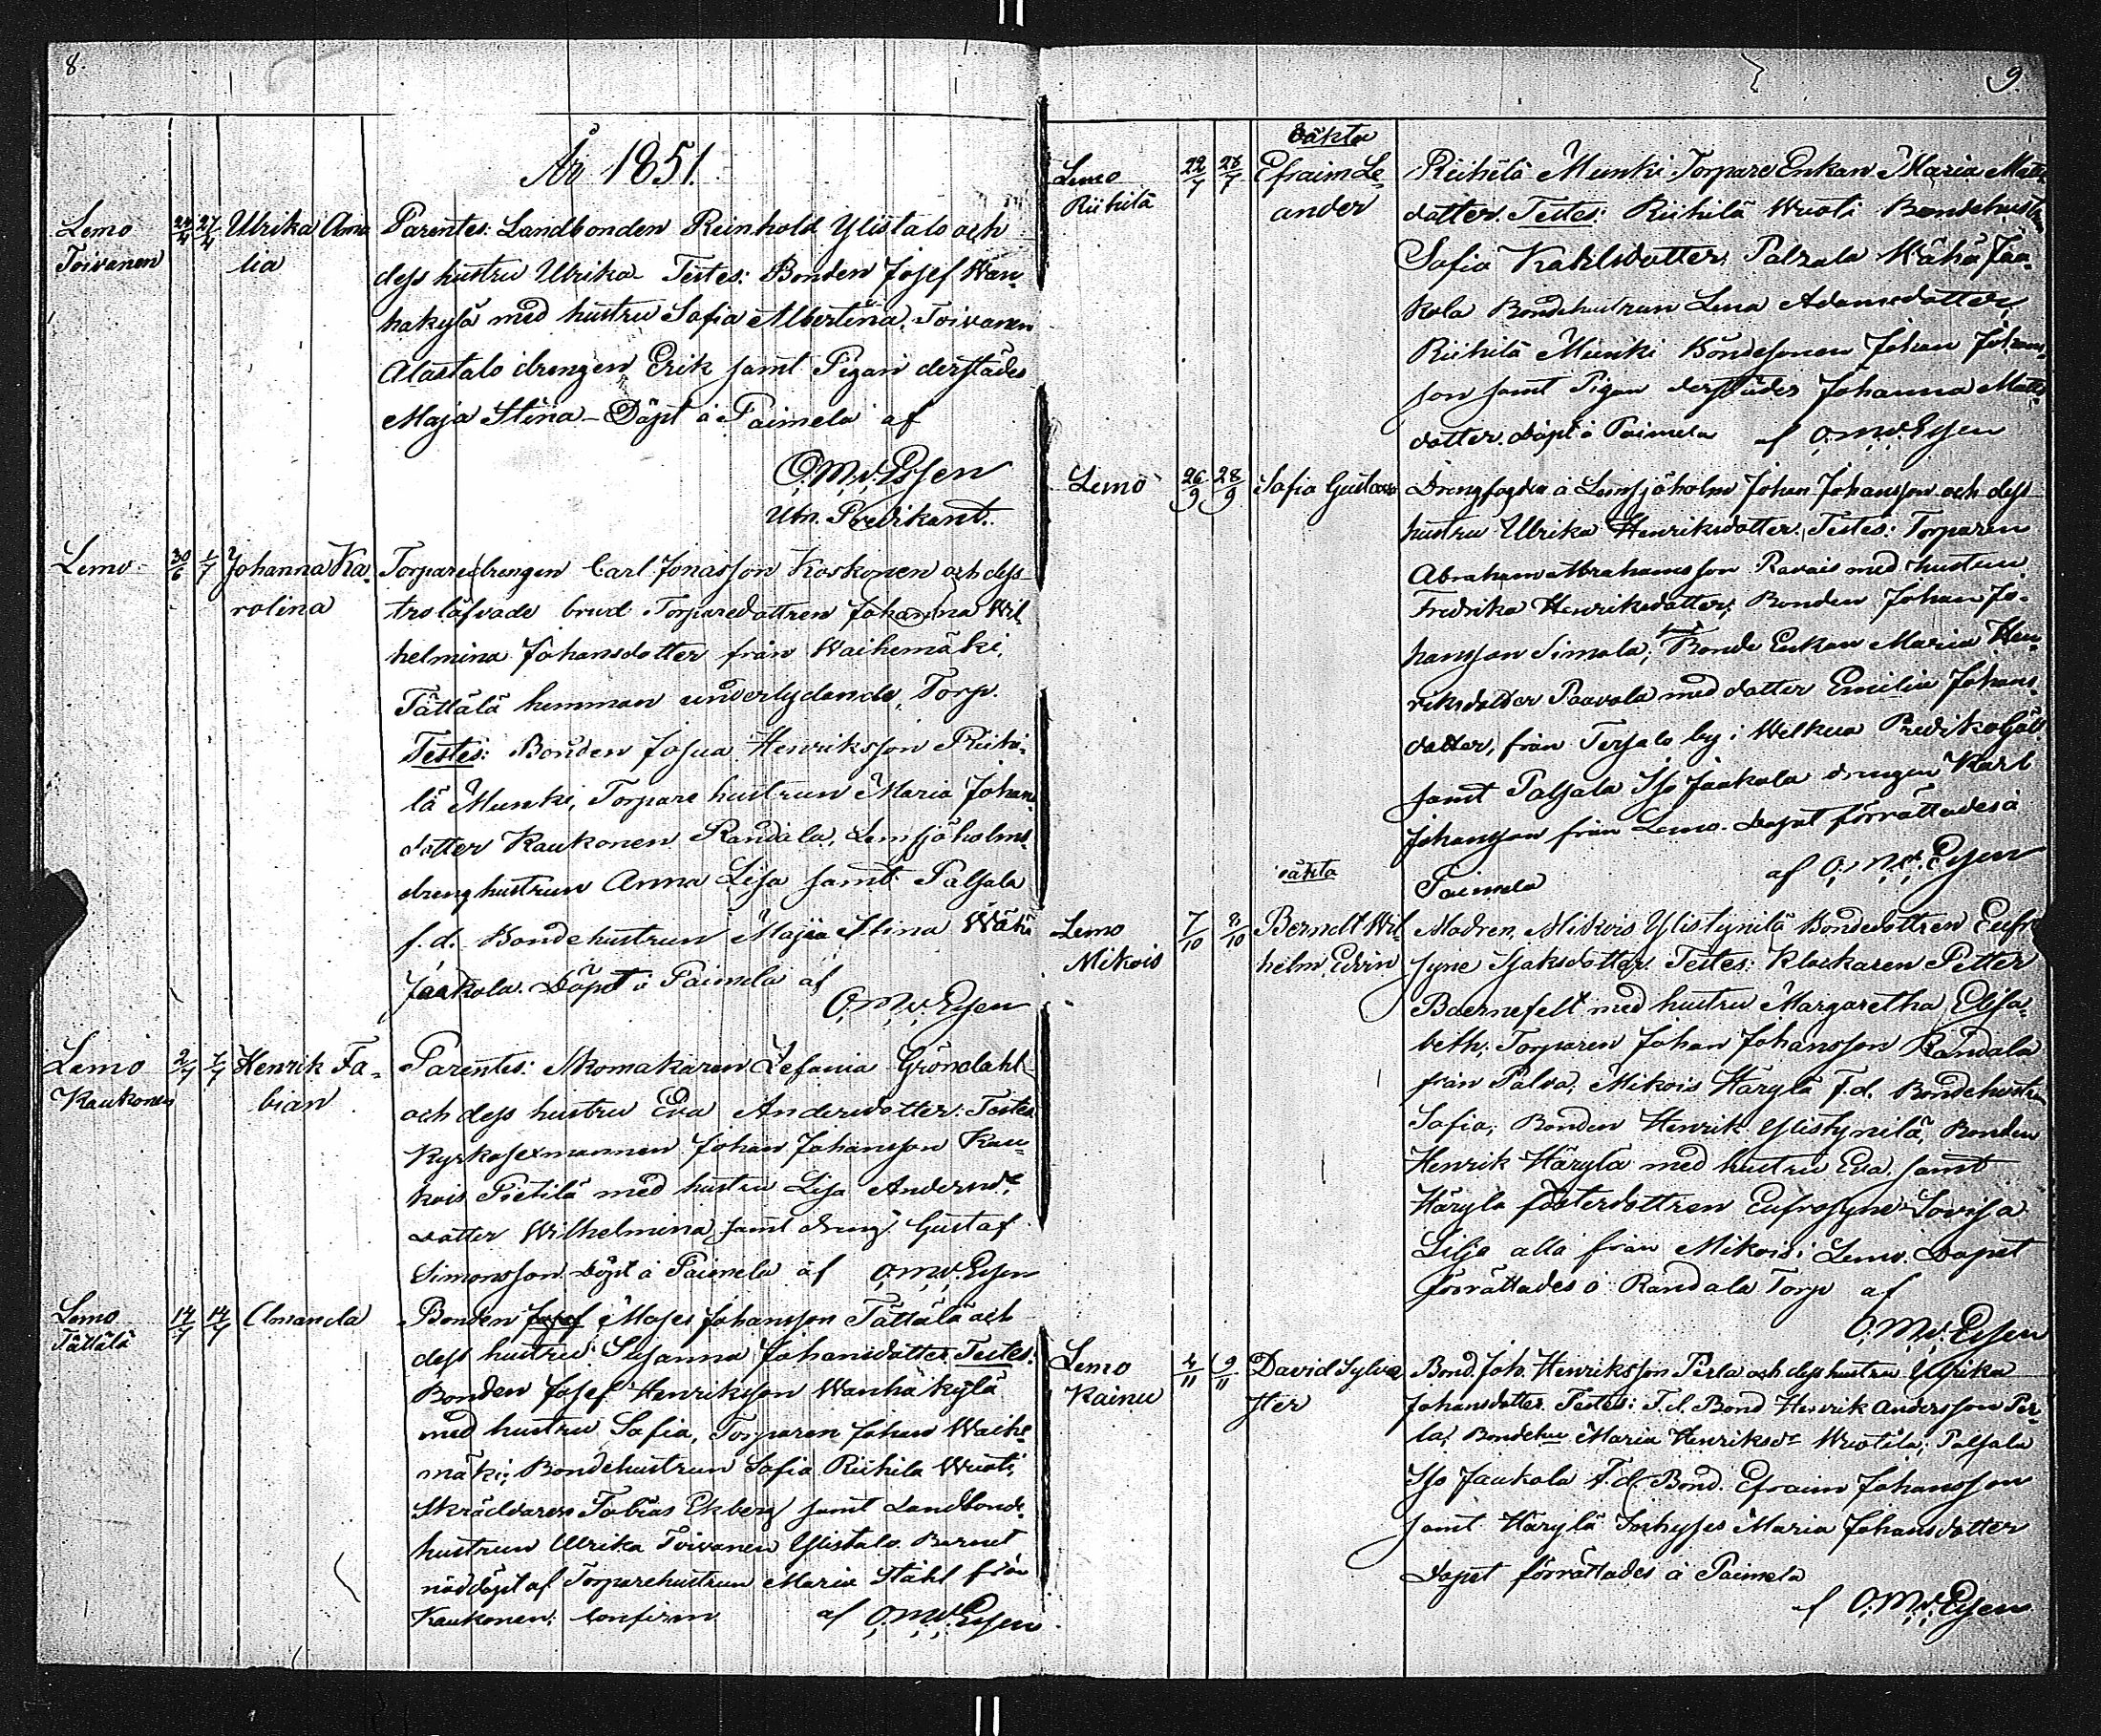 8.
År 1851.
Lemo 24/4 27/4 Ulrika Ama Parentes: Landbonden Reinhold Ylistalo och
Toivanen lia dess hustru Ulrika Testes: Bonden Josef Wan¬
hakylä med hustru Sofia Albertina, Toivanen
Alastalo drengen Erik samt Pigan derstädes
Maja Stina – Döpt å Paimela af
O.M.v.Essen
Utn. Predikant.
Lemo 30/6 1/7 Johanna Ka¬ Torparedrengen Carl Jonasson Koskonen och dess
rolina trolåfvade brud Torparedottren Johanna Wil
helmina Johansdotter från Waihemäki,
Tättälä hemman underlydande, Torp.
Testes: Bonden Josua Henriksson Riihi¬
lä Munki, Torpare hustrun Maria Johans
dotter Kaukonen Randala, Lemsjöholms
dreng hustrun Anna Lisa samt Palsala
f.d. Bondehustrun Maja Stina Wähä
Jaakola. Döpt å Paimela af
O.M.v.Essen
Lemo 2/7 7/7 Henrik Fa¬ Parentes: Skomakaren Zefania Gröndahl
Kaukonen bian och dess hustru Eva Andersdotter. Testes
Kyrkosexmannen Johan Johansson Kau¬
kois Pietilä med hustru Lisa Andersd:r
dotter Wilhelmina samt dreng Gustaf
Simonsson. Döpt å Paimela af O.M.v.Essen
Lemo 14/7 14/7 Amanda Bonden Josef Moses Johansson Tättälä och
Tättälä dess hustru Susanna Johansdotter Testes:
Bonden Josef Henriksson Wanhakylä
med hustru Sofia, Torparen Johan Waihe¬
mäki, Bondehustrun Sofia Riihilä Wuoti,
Skräddaren Tobias Ekberg samt Landbonde
hustrun Ulrika Toivanen Ylistalo Barnet
nöddöpt af Torparehustrun Maria Ståhl från
Kaukonen. Confirm af O.M.v.Essen
9.
oäkta
Lemo 22/7 28/7 Efraim Le¬ Riihilä Munki Torpare Enkan Maria Matts
Riihilä ander dotter. Testes: Riihilä Wuoti Bondehustrun
Sofia Kahlsdotter, Palsala Wähä Jaa¬
kola Bondehustrun Lena Adamsdotter,
Riihilä Munki Bondesonen Johan Johans¬
son samt Pigan derstädes Johanna Matts
dotter. Döpt å Paimela af O.M.v.Essen
Lemo 26/9 28/9 Sofia Gustava Drengfogden å Lemsjöholm Johan Johansson och dess
hustru Ulrika Henriksdotter. Testes: Torparen
Abraham Abrahamsson Ravais med hustrun
Fredrika Henriksdotter, Bonden Johan Jo¬
hansson Simola, Bonde Enkan Maria Hen¬
riksdotter Paavola med dotter Emilia Johans¬
dotter, från Tersalo by i Welkua Predikogäll
samt Palsala Iso Jaakola drengen Karl
Johansson från Lemo. Dopet förrättades å
Paimela af O.M.v.Essen
oäkta
Lemo 7/10 8/10 Berndt Wil¬ Modren, Mikois Ylistynilä Bondedottren Eufro
Mikois helm Edvin syne Isaksdotter. Testes: Klockaren Petter
Baernefelt med hustru Margaretha Elisa¬
beth, Torparen Johan Johansson Randala
från Palva, Mikois Häryla F.d. Bondehustrun
Sofia, Bonden Henrik Ylistynilä, Bonden
Henrik Häryla med hustru Eva samt
Häryla fosterdottren Eufrosyne Lovisa
Lilja alla från Mikois i Lemo. Dopet
förrättades å Randala Torp af
O.M.v.Essen
Lemo 4/11 9/11 David Sylve Bond. Joh. Henriksson Perla och dess hustru Ulrika
Kainu ster Johansdotter. Testes: F.d. Bond Henrik Andersson Per¬
la, Bondehu Maria Henriksd:r Wuotila, Palsala
Iso Jaakola F.d. Bond. Efraim Johansson
samt Härylä Inhyses Maria Johansdotter
Dopet förrättades å Paimela
af O.M.v.Essen